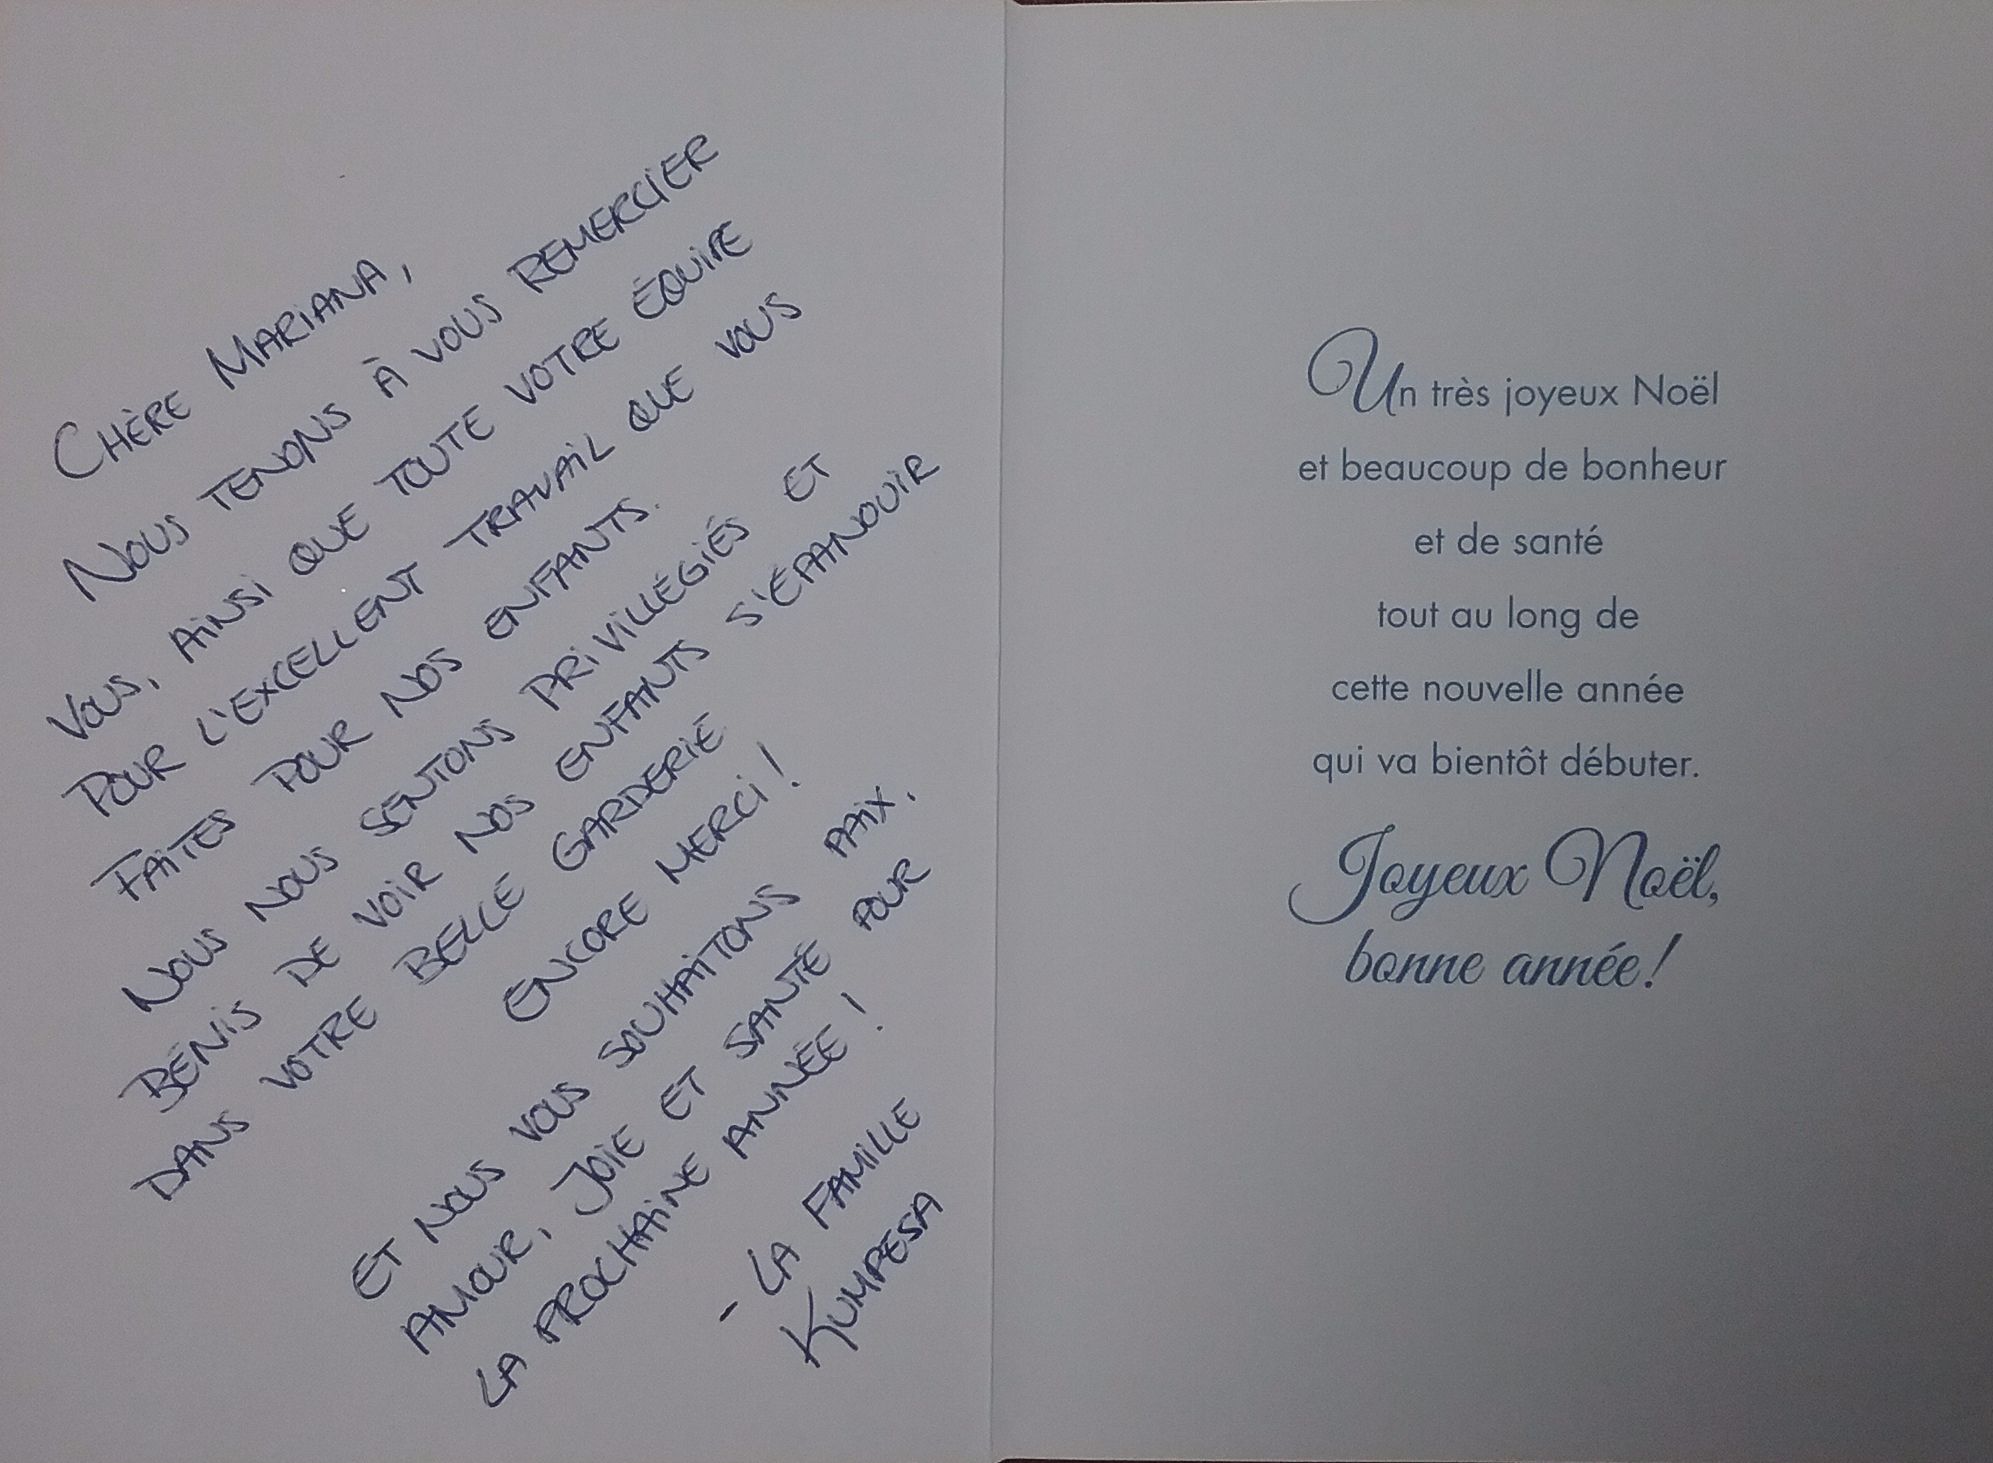 CHÈRE MARIANA,
NOUS TENONS À VOUS REMERCIER
VOUS, AINSI QUE TOUTE VOTRE ÉQUIPE
POUR L'EXCELLENT TRAVAIL QUE VOUS
FAITES POUR NOS ENFANTS.
NOUS NOUS SENTONS PRIVILLÉGIÉS ET
BÉNIS DE VOIR NOS ENFANTS S'ÉPANOUIR
DANS VOTRE BELLE GARDERIE.
ENCORE MERCI !
ET NOUS VOUS SOUHAITONS PAIX,
AMOUR, JOIE ET SANTÉ POUR
LA PROCHAINE ANNÉE !
- LA FAMILLE
KUMPESA
Un très joyeux Noël
et beaucoup de bonheur
et de santé
tout au long de
cette nouvelle année
qui va bientôt débuter.
Joyeux Noël,
bonne année !